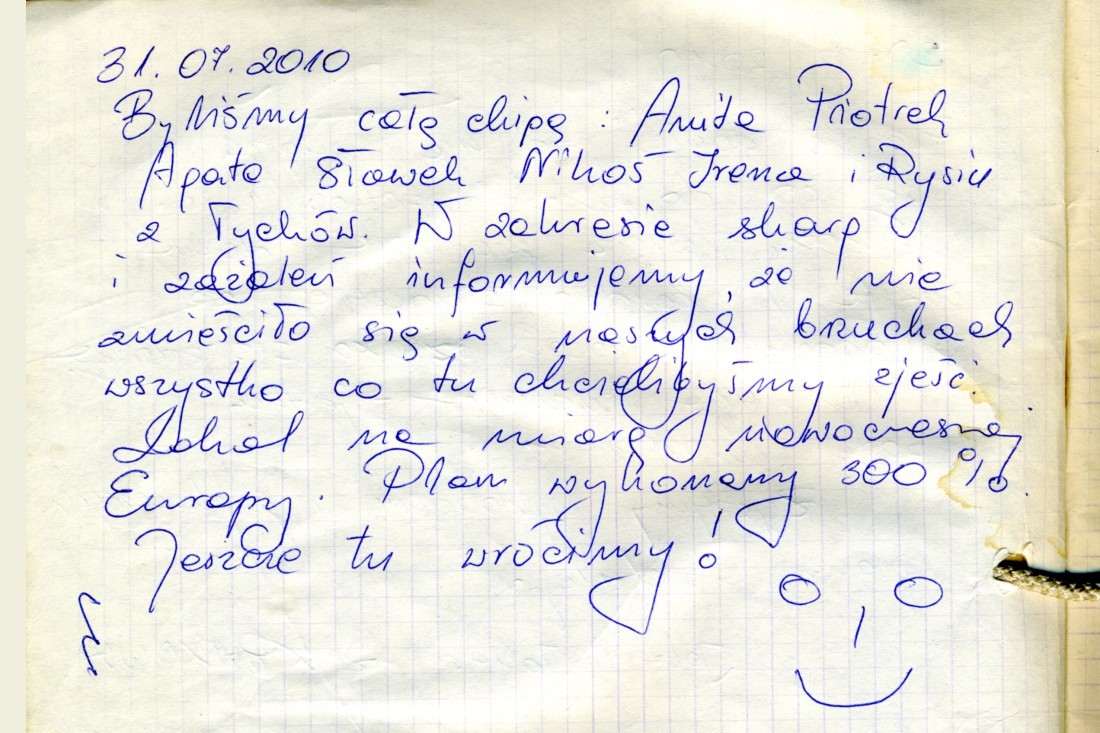 31.07.2010
Byliśmy całą ekipą: Anita Piotrek
Agata Sławek Nikoś Irena i Rysiu
z Tychów. W zakresie skarg
i zażaleń informujemy, że nie
zmieściło się w naszych brzuchach
wszystko co tu chcielibyśmy zjeść.
Lokal na miarę nowoczesnej
Europy. Plan wykonany 300%.
Jeszcze tu wrócimy!